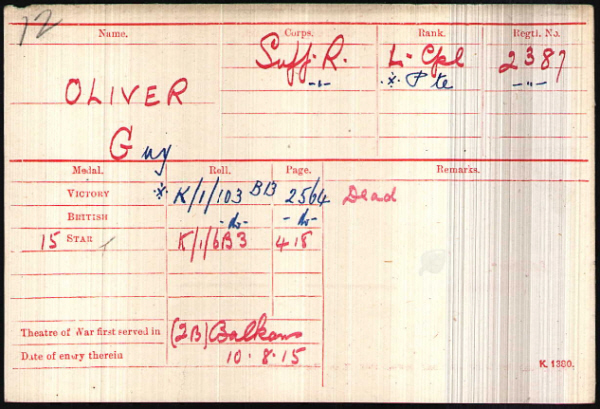 72
Name. Corps. Rank. Regtl. No.
OLIVER Suff. R. L-Cpl 2387
Guy -"- .x. Pte -"-
Medal. Roll. Page. Remarks.
VICTORY .x. K/1/103 B13 2564 Dead
BRITISH -do- -do-
15 STAR K/1/6B3 418
Theatre of War first served in (2B) Balkans
Date of entry therein 10.8.15
K. 1380.